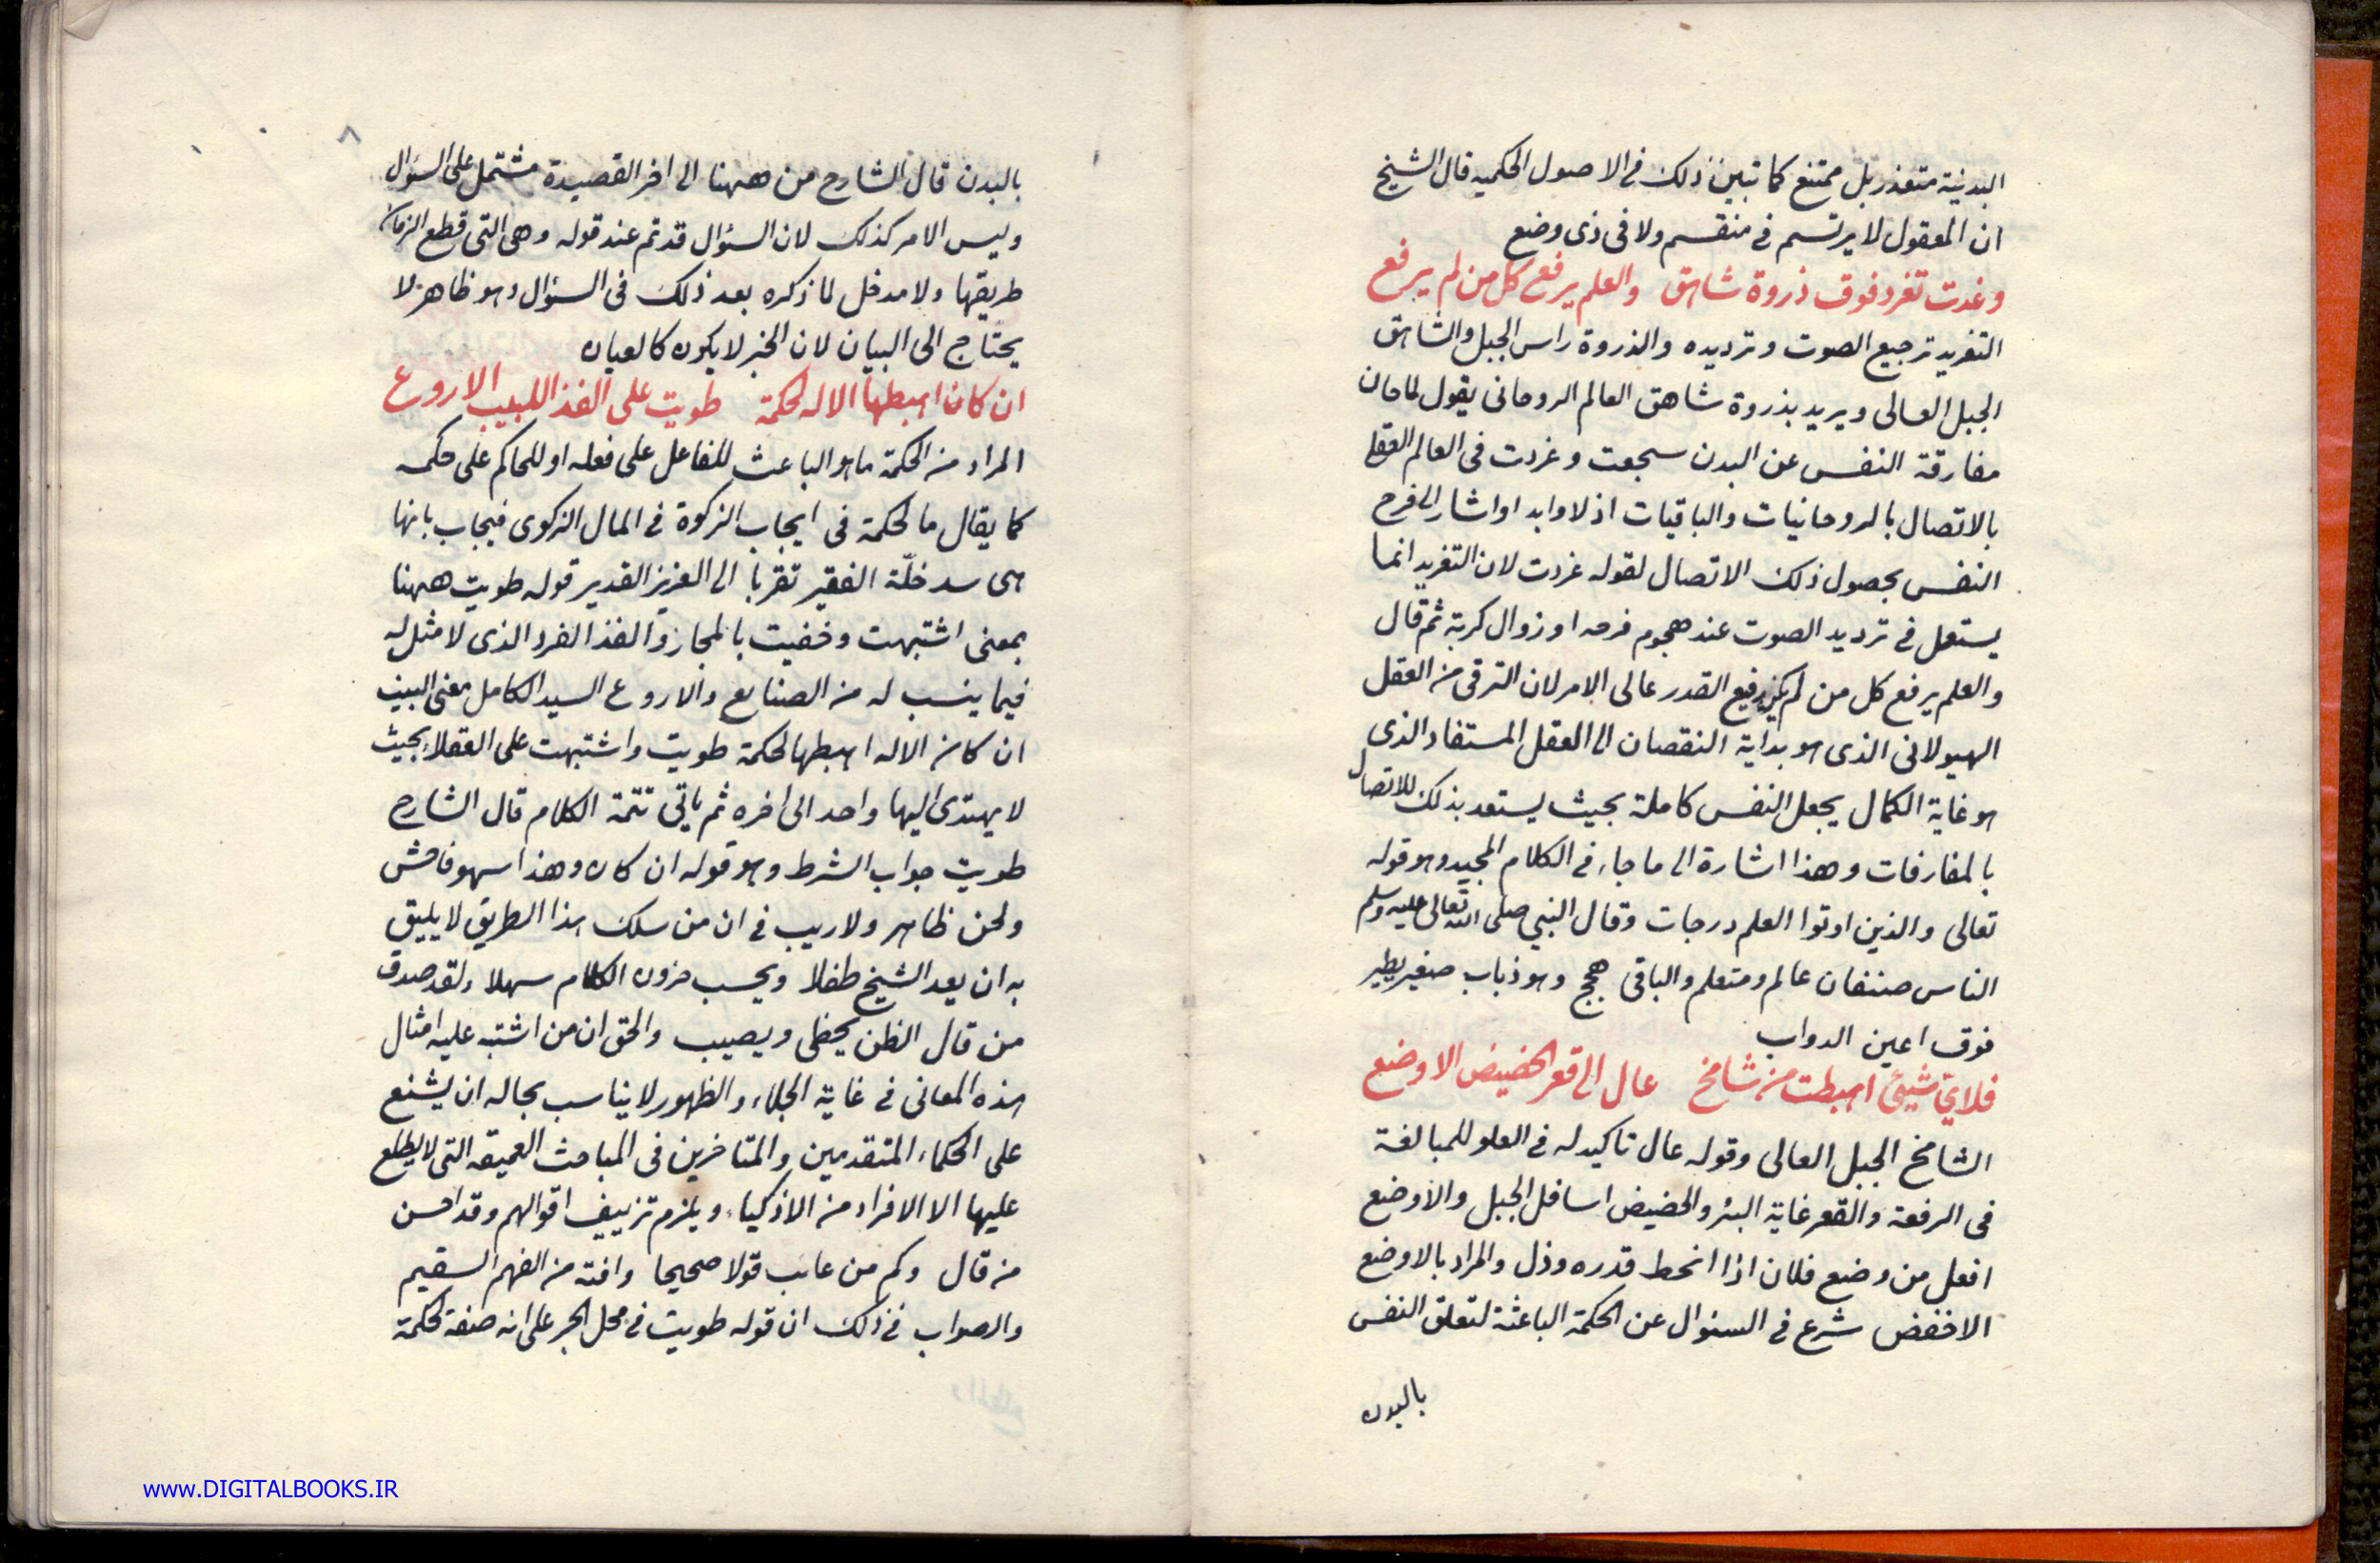 البدنية متعذر بل ممتنع كما تبين ذلك فى الاصول الحكميه قال الشيخ
ان المعقول لا يرتسم فى منقسم ولا فى ذى وضع
وغدت تغرد فوق ذروة شاهق والعلم يرفع كل من لم يرفع
التغريد ترجيع الصوت وترديده والذروة راس الجبل والشاهق
الجبل العالى ويريد بذروة شاهق العالم الروحانى يقول لما حان
مفارقة النفس عن البدن سجعت وغردت فى العالم العقلى
بالاتصال بالروحانيات والباقيات اذلا وابدا واشار الى فرح
النفس بحصول ذلك الاتصال لقوله غردت لان التغريد انما
يستعمل فى ترديد الصوت عند هجوم فرحه او زوال كربة ثم قال
والعلم يرفع كل من لم يكن رفيع القدر عالى الامر لان الترقى من العقل
الهيولانى الذى هو بداية النقصان الى العقل المستفاد الذى
هو غاية الكمال يجعل النفس كاملة بحيث يستعد بذلك للاتصال
بالمفارقات وهذا اشارة الى ما جاء فى الكلام المجيد وهو قوله
تعالى والذين اوتوا العلم درجات وقال النبى صلى الله تعالى عليه وسلم
الناس صنفان عالم ومتعلم والباقى همج وهو ذباب صغير يطير
فوق اعين الدواب
فلاى شيئ اهبطت من شامخ عال الى قعر الحضيض الاوضع
الشامخ الجبل العالى وقوله عال تاكيد له فى العلو للمبالغة
فى الرفعة والقعر غاية البئر والحضيض اسافل الجبل والاوضع
افعل من وضع فلان اذا انحط قدره وذل والمراد بالاوضع
الاخفض شرع فى السئوال عن الحكمة الباعثة لتعلق النفس
بالبدن
٨
بالبدن قال الشارح من ههنا الى اخر القصيدة مشتمل على السؤال
وليس الامر كذلك لان السؤال قد تم عند قوله وهى التى قطع الزمان
طريقها ولا مدخل لما ذكره بعد ذلك فى السؤال وهو ظاهر لا
يحتاج الى البيان لان الخبر لا يكون كالعيان
ان كان اهبطها الاله لحكمة طويت على الفذ اللبيب الاروع
المراد من الحكمة ما هو الباعث للفاعل على فعله او للحاكم على حكمه
كما يقال ما لحكمة فى ايجاب الزكوة فى المال الزكوى فيجاب بانها
هى سد خلّة الفقير تقربا الى العزيز القدير قوله طويت ههنا
بمعنى اشتبهت وخفيت بالمجاز والفذ الفرد الذى لا مثل له
فيما ينسب له من الصنايع والاروع السيد الكامل معنى البيت
ان كان الاله اهبطها لحكمة طويت واشتبهت على العقلاء بحيث
لا يهتدى اليها واحد الى اخره ثم ياتى تتمة الكلام قال الشارح
طويت جواب الشرط وهو قوله ان كان وهذا سهو فاحش
ولحن ظاهر ولا ريب فى ان من سلك هذا الطريق لا يليق
به ان يعد الشيخ طفلا ويحسب حزون الكلام سهلا ولقد صدق
من قال الظن يخطى ويصيب والحق ان من اشتبه عليه امثال
هذه المعانى فى غاية الجلاء والظهور لا يناسب بحاله ان يشنع
على الحكماء المتقدمين والمتاخرين فى المباحث العميقه التى لا يطلع
عليها الا الافراد من الاذكياء ويلزم تزييف اقوالهم وقد احسن
من قال وكم من عايب قولا صحيحا وافته من الفهم السقيم
والصواب فى ذلك ان قوله طويت فى محل الجر على انه صفة لحكمة
www.DIGITALBOOKS.IR